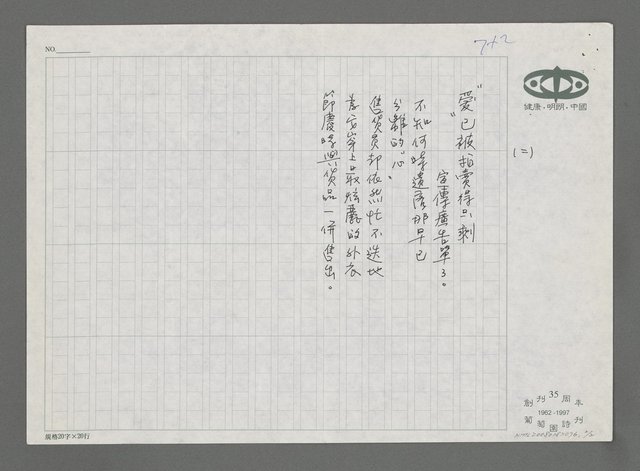 NO.
7+2
健康·明朗·中國
(二)
“愛”已被拍賣得只剩
宣傳廣告單了。
不知何時遺落那早已
分離的心。
售貨員卻依然忙不迭地
為它穿上最炫麗的外衣
節慶時與貨品一併售出。
創刊35周年
1962-1997
葡萄園詩刊
規格20字×20行